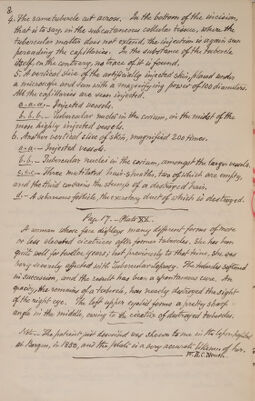 8
4. The same tubercle cut across. In the bottom of the incision,
that is to say in the subcutaneous cellular tissue, where the
tubercular matter does not extend, the injection is again seen
ascending the capillaries. In the substance of the tubercle
itself, on the contrary, no trace of it is found.
5. A vertical slice of the artificially injected skin, placed under
a microscope and seen with a magnifying power of 100 diameters.
All the capillaries are seen injected.
a.a.a. - Injected vessels.
b.b.b. - Tubercular nuclei in the corium, in the midst of the
most highly injected vessels.
6. Another vertical slice of skin, magnified 200 times.
a.a. - Injected vessels.
b.b.b. - Tubercular nuclei in the corium, amongst the larger vessels.
c.c.c. - Three mutilated hair-sheaths, two of which are empty,
and the third contains the stump of a destroyed hair.
d. - A sebaceous follicle, the excretory duct of which is destroyed.
Fig. 17. - Plate XX.
A woman whose face displays many different forms of more
or less elevated cicatrices after former tubercles. She has been
quite well for twelve years; but previously to that time, she was
very severely afflicted with Tubercular leprosy. The tubercles softened
in succession, and the result has been a spontaneous cure. An
opacity, the remains of a tubercle, has nearly destroyed the sight
of the right eye. The left upper eyelid forms a pretty sharp
angle in the middle, owing to the cicatrix of destroyed tubercles.
Note. - The patient just described was shown to me in the leper hospital
at Bergen, in 1850, and the plate is a very accurate likeness of her.